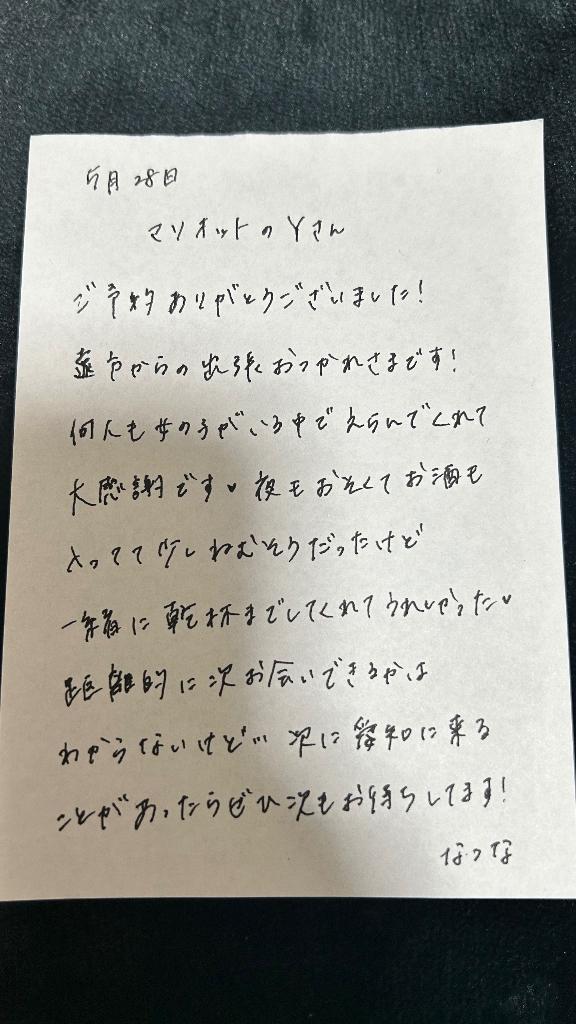 5月28日
マリオットのYさん
ご予約ありがとうございました！
遠方からの出張おつかれさまです！
何人も女の子がいる中でえらんでくれて
大感謝です♥夜もおそくてお酒も
入ってて少しねむそうだったけど
一緒に乾杯までしてくれてうれしかった♥
距離的に次お会いできるかは
わからないけど… 次に愛知に来る
ことがあったらぜひ次もお待ちしてます！
なつな